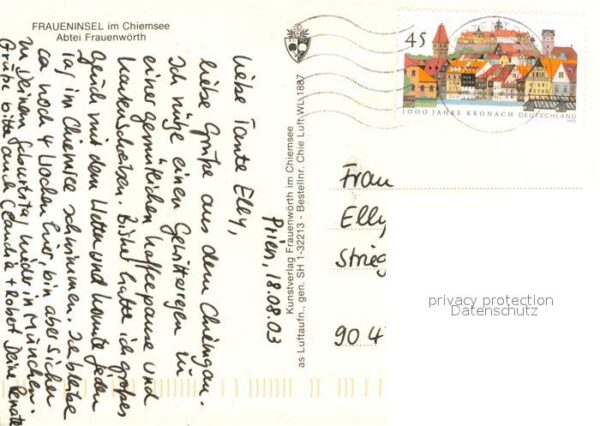 FRAUENINSEL im Chiemsee
Abtei Frauenwörth
Prien, 18.08.03
Liebe Tante Elly,
liebe Grüße aus dem Chiemgau.
Ich nütze einen Gewitterregen zu
einer gemütlichen Kaffeepause und
Kartenschreiben. Bisher hatte ich großes
Glück mit dem Wetter und konnte jeden
Tag im Chiemsee schwimmen. Ich bleibe
ca noch 4 Wochen hier, bin aber sicher
zu Deinem Geburtstag wieder in München.
Grüße bitte auch Claudia + Robert Deine Renate
Kunstverlag Frauenwörth im Chiemsee
as Luftaufn., gen. SH 1-32213 - Bestellnr. Chie Luft WL 1887
45
1000 JAHRE KRONACH DEUTSCHLAND
Frau
Elly
Strieg
90 4
privacy protection
Datenschutz